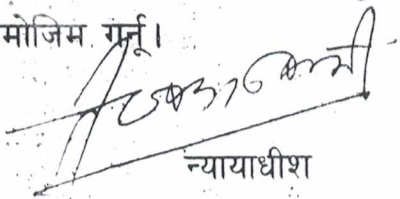 मोजिम गर्नू।
न्यायाधीश